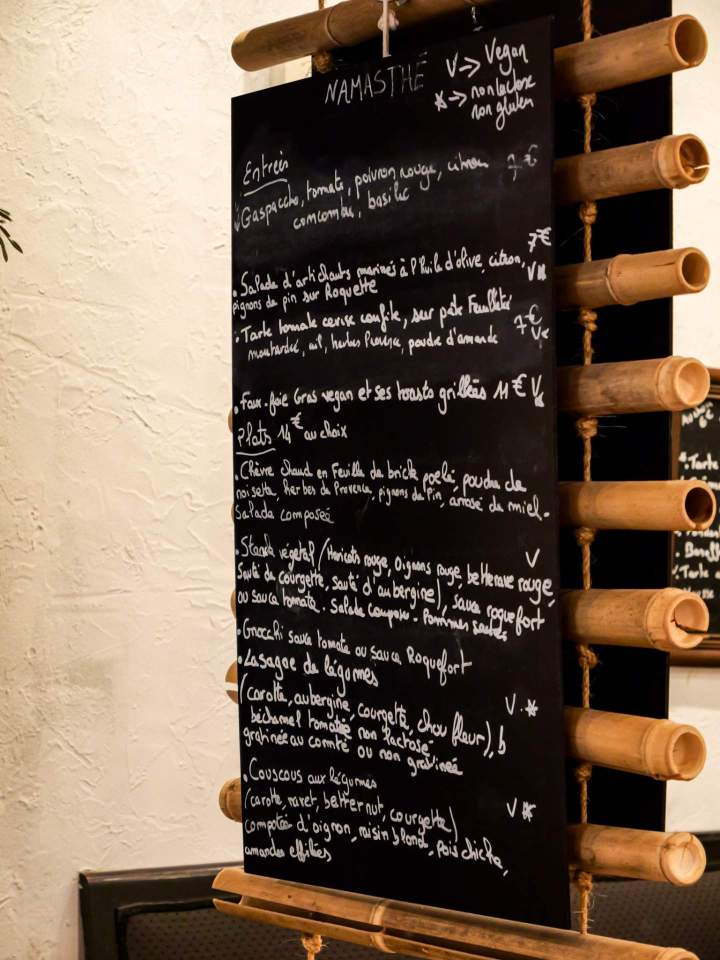 NAMASTHÉ
V → Vegan
* → non lactose
non gluten
Entrées
Gaspaccho, tomate, poivron rouge, citron 7€
concombre, basilic
7€
• Salade d'artichauts marinés à l'huile d'olive, citron, V*
pignons de pin sur Roquette
• Tarte tomate cerise confite, sur pâte Feuilleté 7€
moutarde, ail, herbes Provence, poudre d'amande V
• Faux-foie Gras vegan et ses toasts grillées 11€ V
Plats 14€ au choix
• Chèvre chaud en Feuille de brick poelé, poudre de
noisette, herbes de Provence, pignons de Pin, arrosé de miel.
Salade composée
• Steack végétal (Haricots rouge, oignons rouge, betterave rouge, V
sauté de courgette, sauté d'aubergine), sauce roquefort
ou sauce tomate. Salade composée. Pommes sautées
• Gnocchi sauce tomate ou sauce Roquefort
• Lasagne de légumes
(carotte, aubergine, courgette, chou fleur), V.*
béchamel tomatée non lactosé
gratinée au comté ou non gratinée
• Couscous aux légumes
(carotte, navet, butternut, courgette) V*
compotée d'oignon, raisin blond, pois chiche,
amandes effilées
Tarte
Tarte